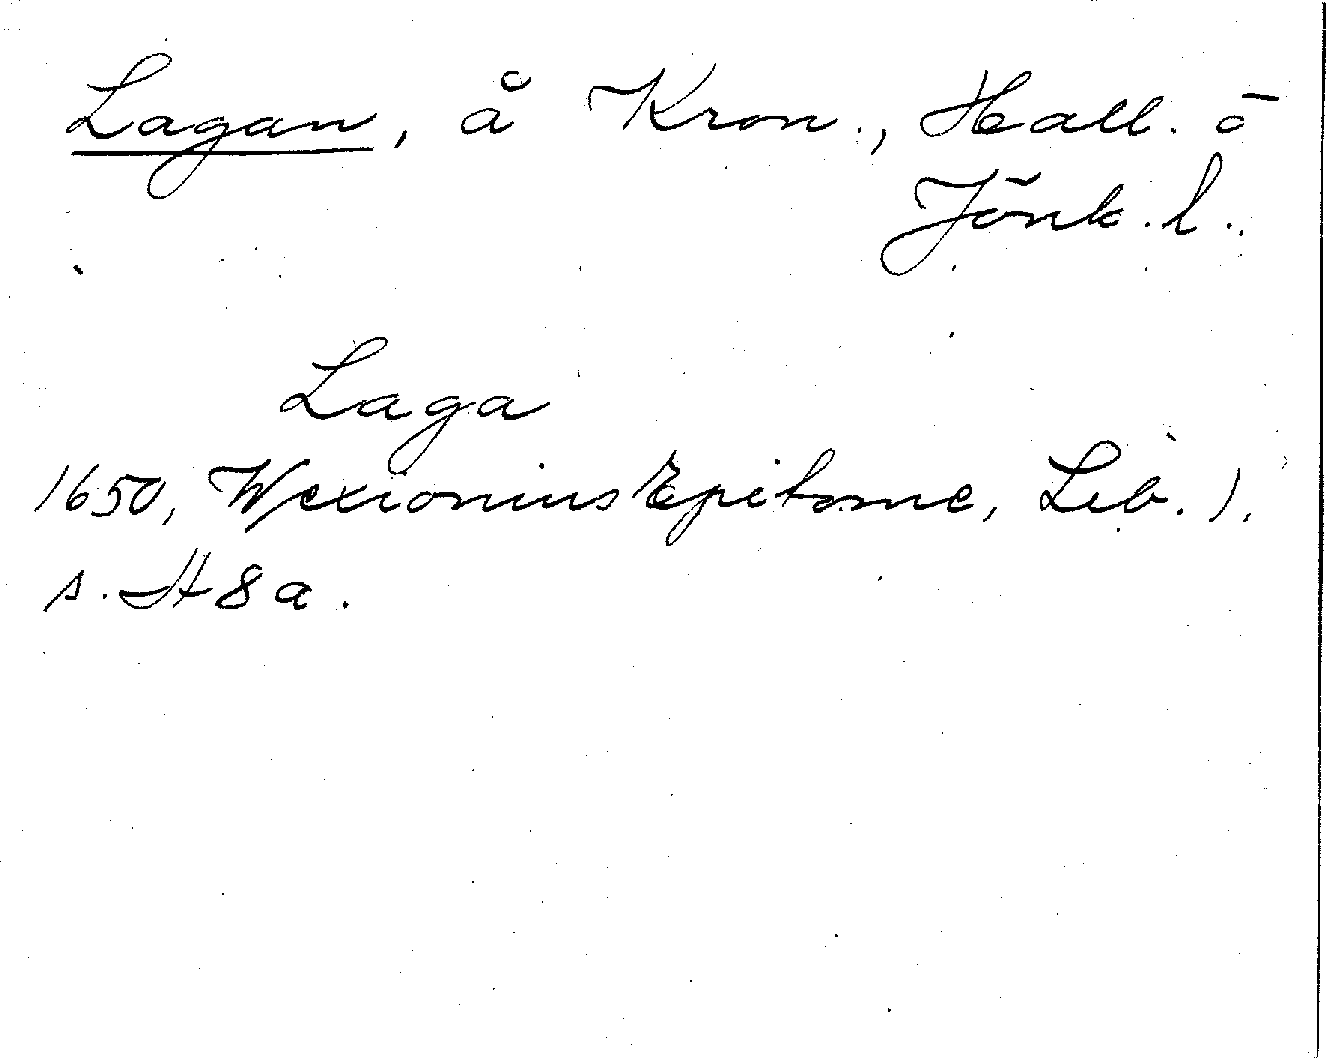 Lagan, å Kron., Hall. o
Jönk. l.
Laga
1650, Wexionius Epitome, Lib. 1,
s. H8a.